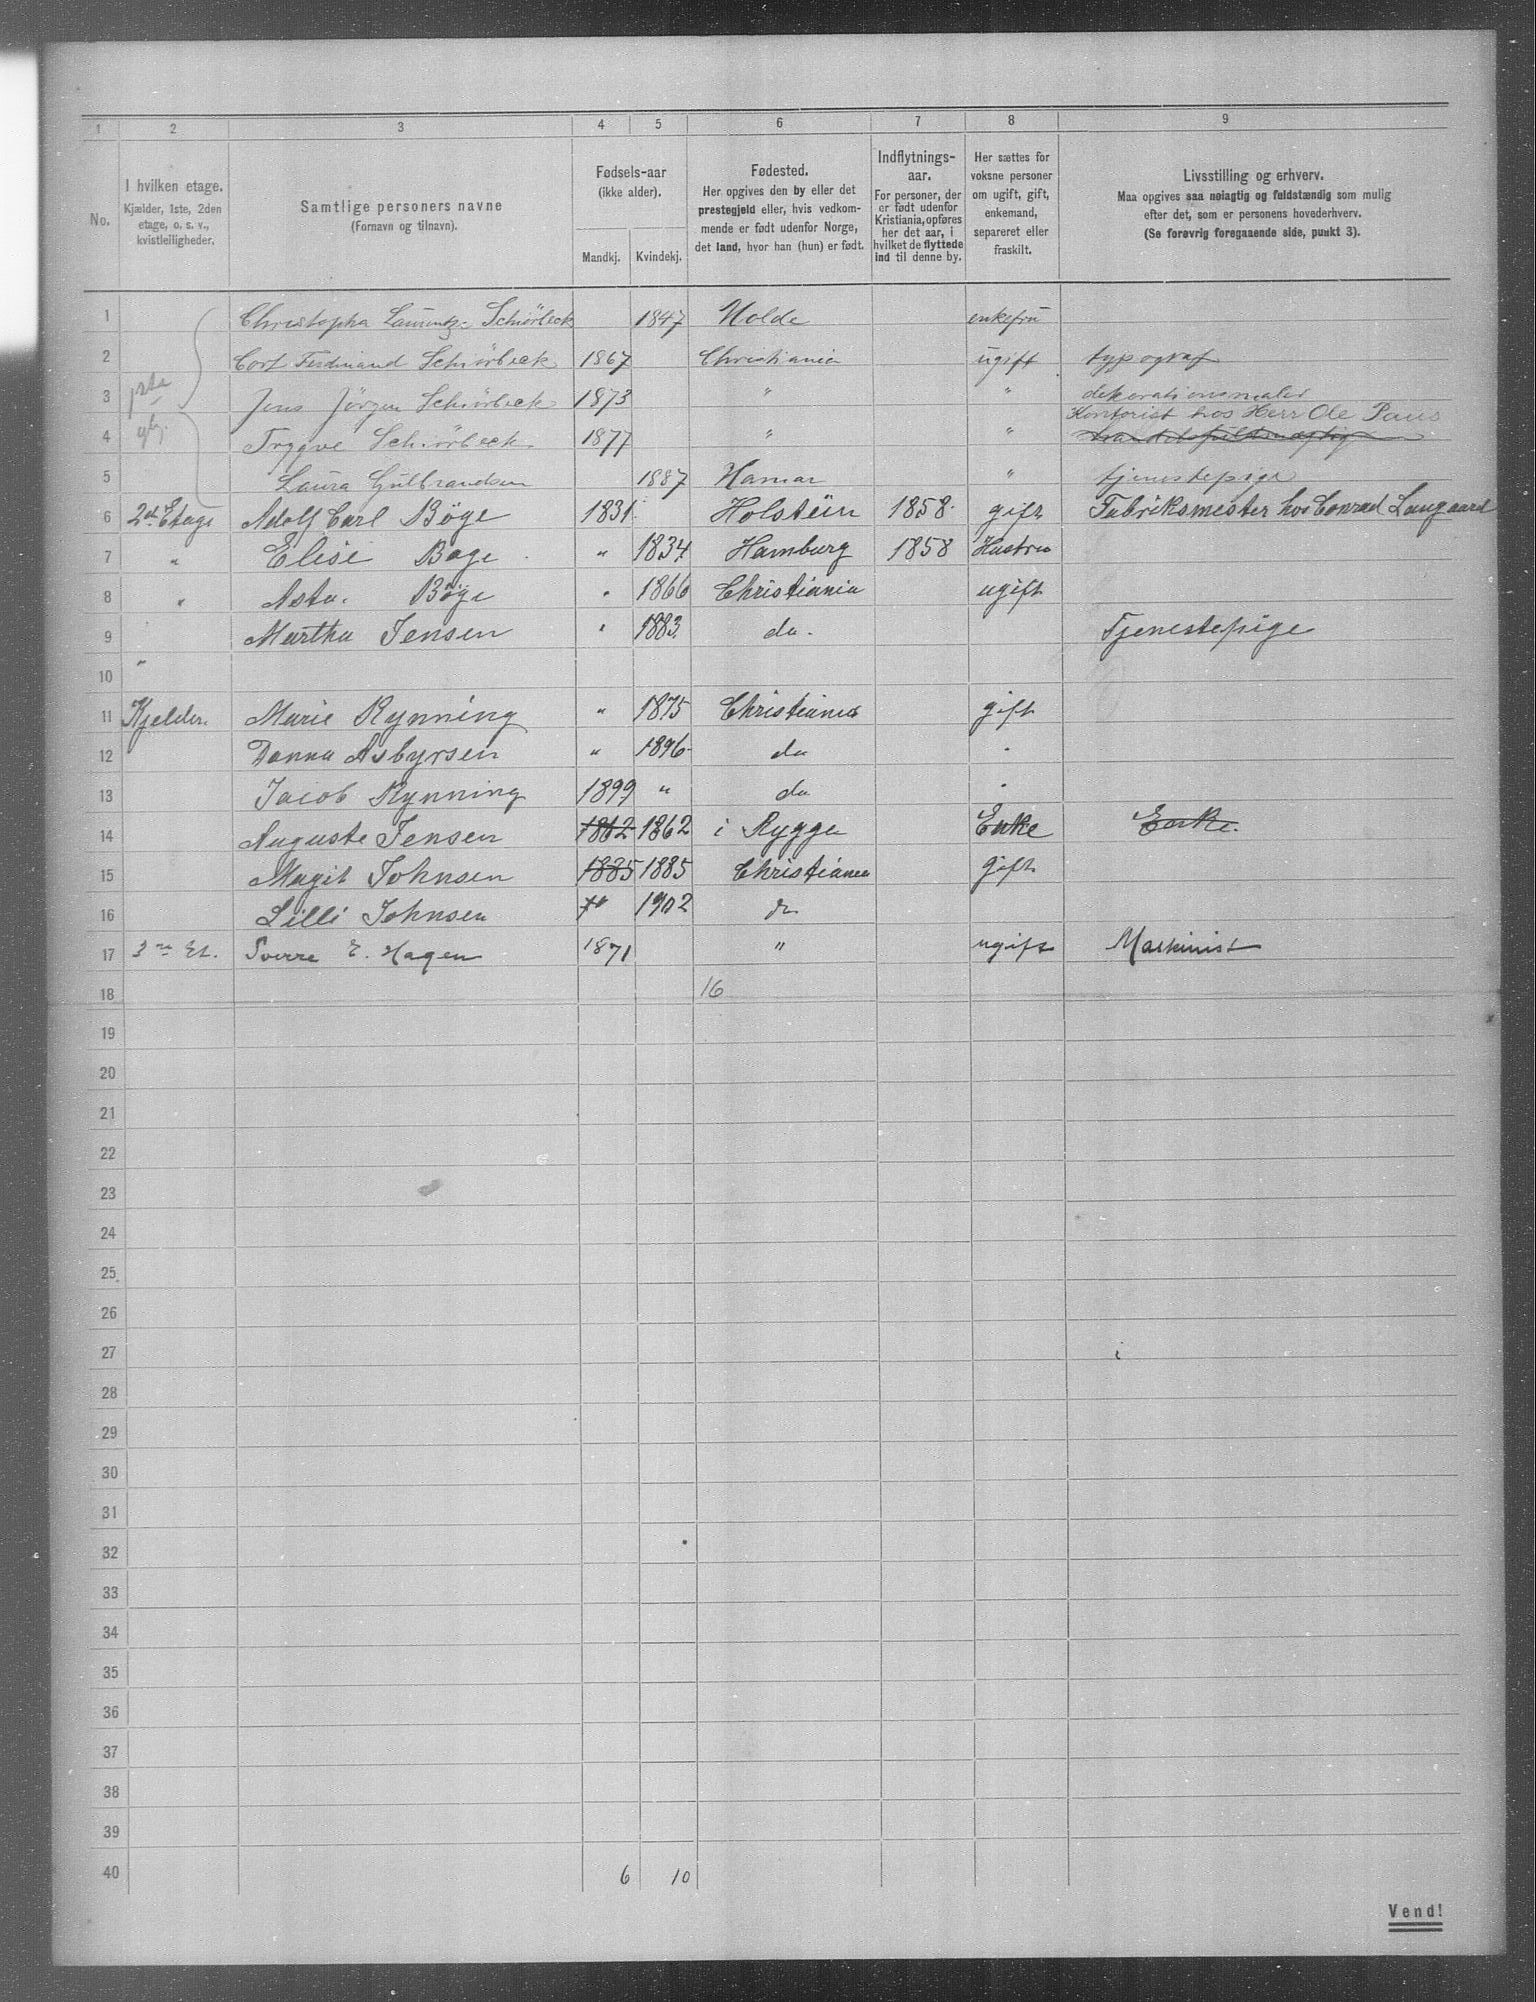 1 2 3 4 5 6 7 8 9
No. I hvilken etage. Kjælder, 1ste, 2den etage, o. s. v., kvistleiligheder. Samtlige personers navne (Fornavn og tilnavn). Fødsels-aar (ikke alder). Mandkj. Kvindekj. Fødested. Her opgives den by eller det prestegjeld eller, hvis vedkommende er født udenfor Norge, det land, hvor han (hun) er født. Indflytnings-aar. For personer, der er født udenfor Kristiania, opføres her det aar, i hvilket de flyttede ind til denne by. Her sættes for voksne personer om ugift, gift, enkemand, separeret eller fraskilt. Livsstilling og erhverv. Maa opgives saa nøiagtig og fuldstændig som mulig efter det, som er personens hovederhverv. (Se forøvrig foregaaende side, punkt 3).
1 Christopha Schiörbeck 1847 Molde enkefru
2 Ferdinand Schiörbeck 1867 Christiania ugift typograf
3 1ste Jens Jörgen Schiörbeck 1873 " " dekorationsmaler
Kontorist hos Herr Ole Paus
4 Trygve Schiörbeck 1877 " "
5 Laura Gulbrandsen 1887 Hamar " tjenestepige
6 2d Etage Adolf Carl Böge 1831 Holstein 1858 gift Fabriksmester hos Conrad Langaard
7 " Elise Böge " 1834 Hamburg 1858 Hustru
8 " Asta. Böge " 1866 Christiania ugift
9 Martha Jensen " 1883 do. Tjenestepige
"
10
11 Kjelder. Marie Rynning " 1875 Christiania gift
12 Asbyrsen " 1896 do "
13 Jacob Rynning 1899 " do "
14 Auguste Jensen 1862 1862 i Rygge Enke Enke.
15 Magit Johnsen 1885 1885 Christiania gift
16 Lilli Johnsen " 1902 do
17 3 Et. Sverre E. Hagen 1871 " ugift Maskinist
18 16
19
20
21
22
23
24
25
26
27
28
29
30
31
32
33
34
35
36
37
38
39
40 6 10
Vend!